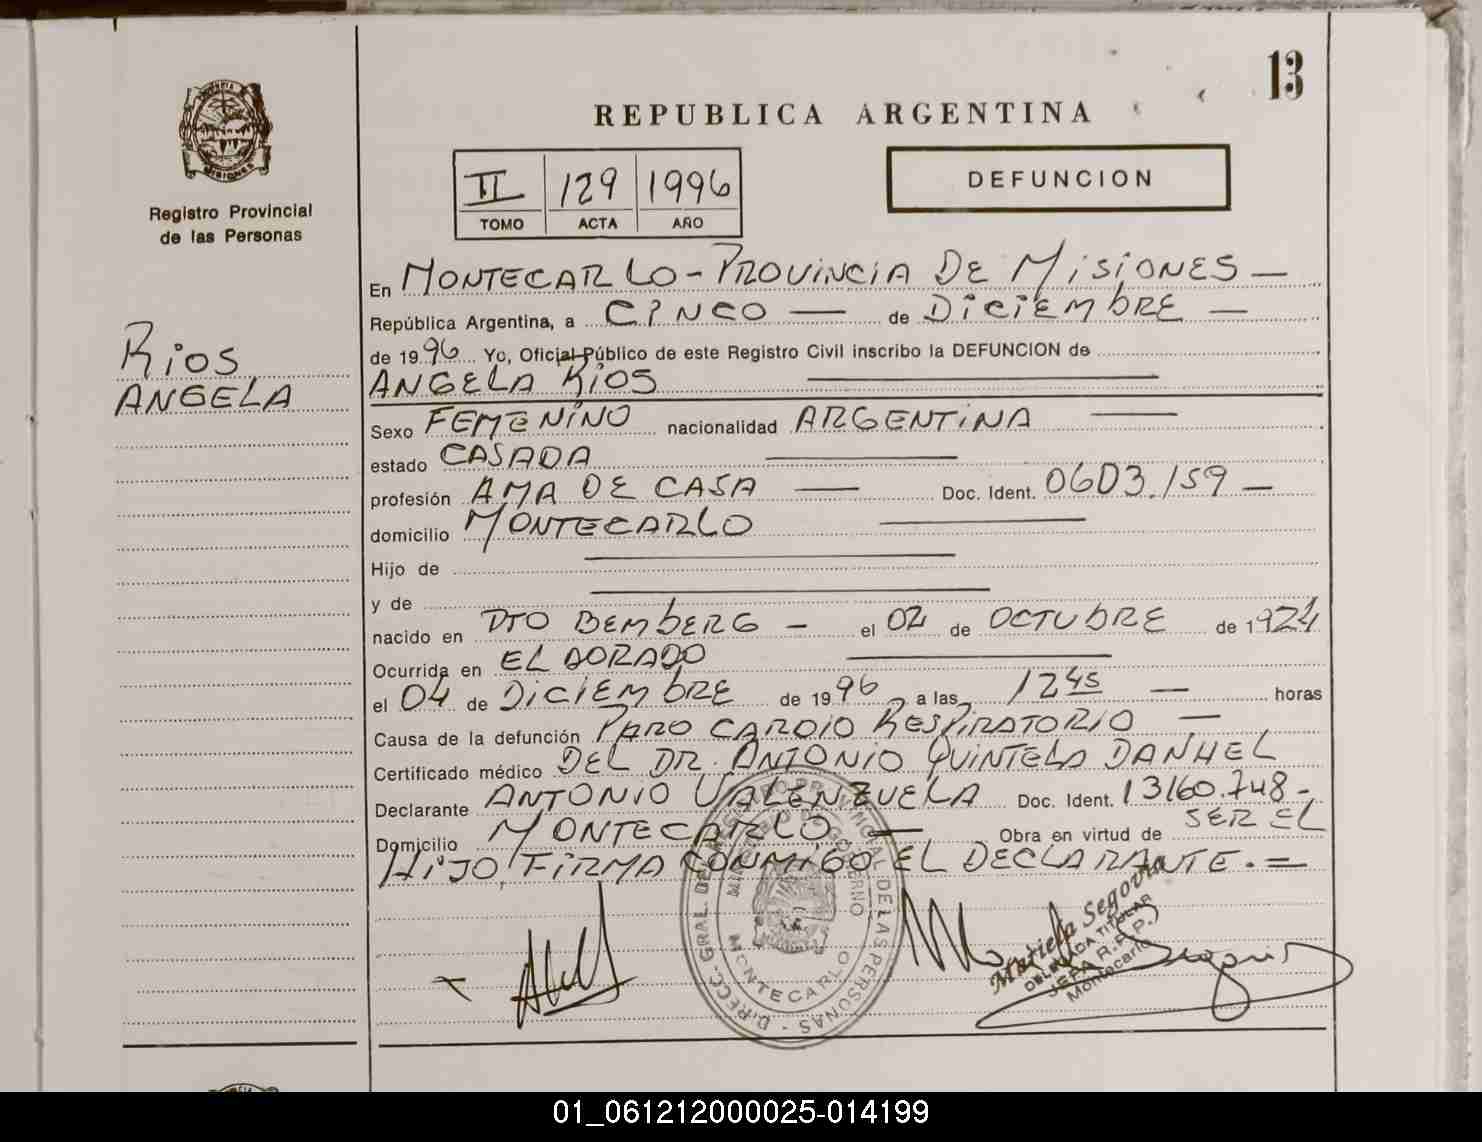 13
REPUBLICA ARGENTINA
II 129 1996
TOMO ACTA AÑO
DEFUNCION
Registro Provincial
de las Personas
RIOS
ANGELA
En MONTECARLO - PROVINCIA DE MISIONES
República Argentina, a CINCO de DICIEMBRE
de 1996 Yo, Oficial Público de este Registro Civil inscribo la DEFUNCION de
ANGELA RIOS
Sexo FEMENINO nacionalidad ARGENTINA
estado CASADA
profesión AMA DE CASA Doc. Ident. 06D3.159
domicilio MONTECARLO
Hijo de
y de
nacido en PTO BEMBERG - el 02 de OCTUBRE de 1924
Ocurrida en ELDORADO
el 04 de DICIEMBRE de 1996 a las 12 45 horas
Causa de la defunción PARO CARDIO RESPIRATORIO
Certificado médico DEL DR. ANTONIO QUINTELA DANHEL
Declarante ANTONIO VALENZUELA Doc. Ident. 13160.748-
Domicilio MONTECARLO Obra en virtud de SER EL
HIJO, FIRMA CONMIGO EL DECLARANTE.=
DIRECC. GRAL. DEL REGISTRO PROVINCIAL DE LAS PERSONAS -
MINISTERIO DE GOBIERNO
MONTECARLO
Segovia
DELEGADA TITULAR
JEFA R.P.P.
Montecarlo
01_061212000025-014199